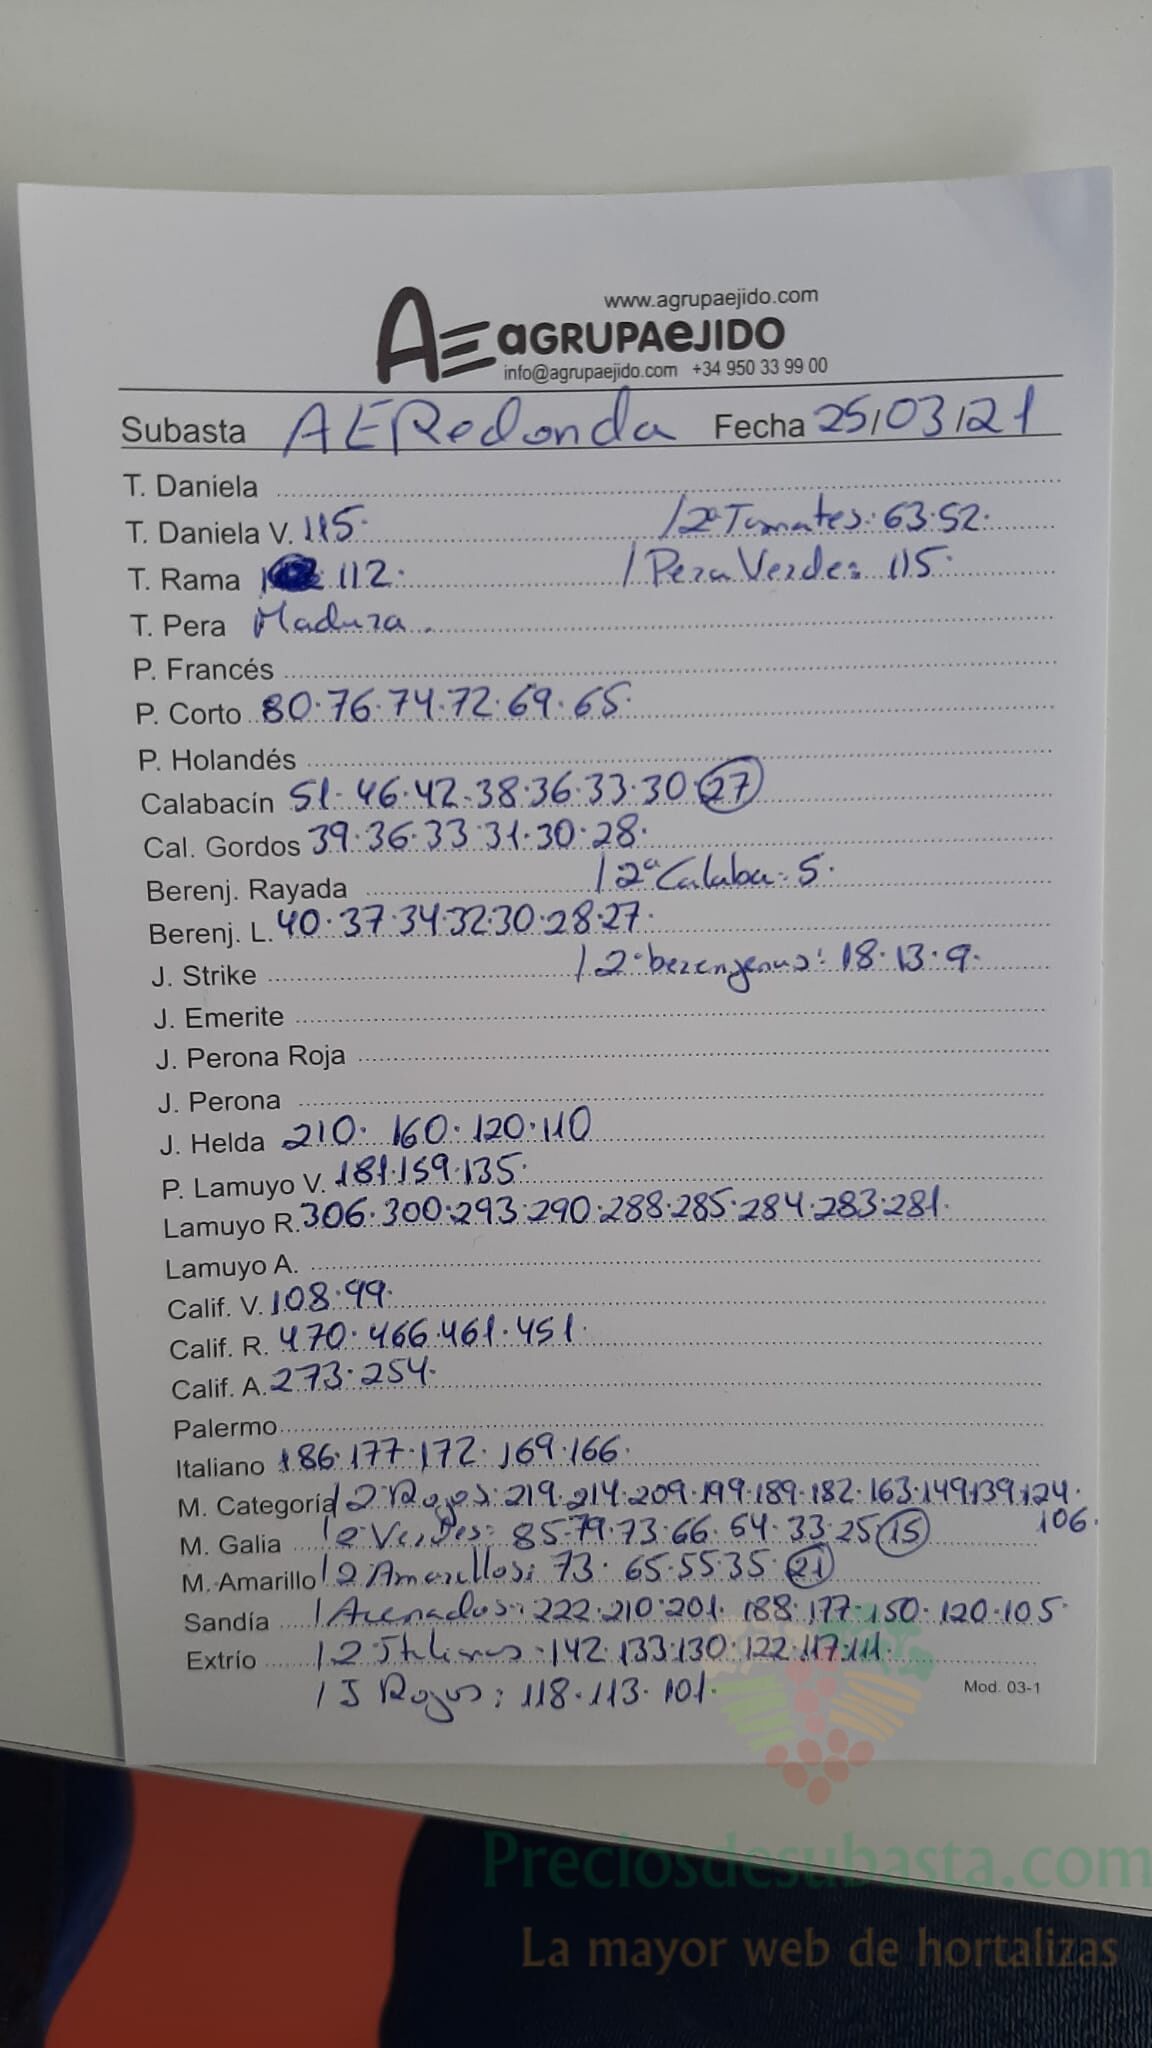 www.agrupaejido.com
AE aGRUPAeJIDO
info@agrupaejido.com +34 950 33 99 00
Subasta AERedonda Fecha 25/03/21
T. Daniela
T. Daniela V. 115. /2ª Tomates: 63.52.
T. Rama 112. / Pera Verde: 115.
T. Pera Madura.
P. Francés
P. Corto 80.76.74.72.69.65.
P. Holandés
Calabacín 51.46.42.38.36.33.30.27
Cal. Gordos 39.36.33.31.30.28.
Berenj. Rayada /2ª Calaba: 5.
Berenj. L. 40.37.34.32.30.28.27.
J. Strike /2ª berenjenas: 18.13.9.
J. Emerite
J. Perona Roja
J. Perona
J. Helda 210. 160.120.110
P. Lamuyo V. 181.159.135.
Lamuyo R. 306.300.293.290.288.285.284.283.281.
Lamuyo A.
Calif. V. 108.99.
Calif. R. 470.466.461.451.
Calif. A. 273.254.
Palermo
Italiano 186.177.172.169.166.
M. Categoría /2 Rojos: 219.214.209.199.189.182.163.149.139.124.
106.
M. Galia /2 Verdes: 85.79.73.66.54.33.25 15
M. Amarillo /2 Amarillos: 73.65.55.35.21
Sandía / Asenados: 222.210.201.188.177.150.120.105.
Extrío /2 Italianos: 142.133.130.122.117.111.
/ J Rojos: 118.113.101.
Mod. 03-1
Preciosdesubasta.com
La mayor web de hortalizas